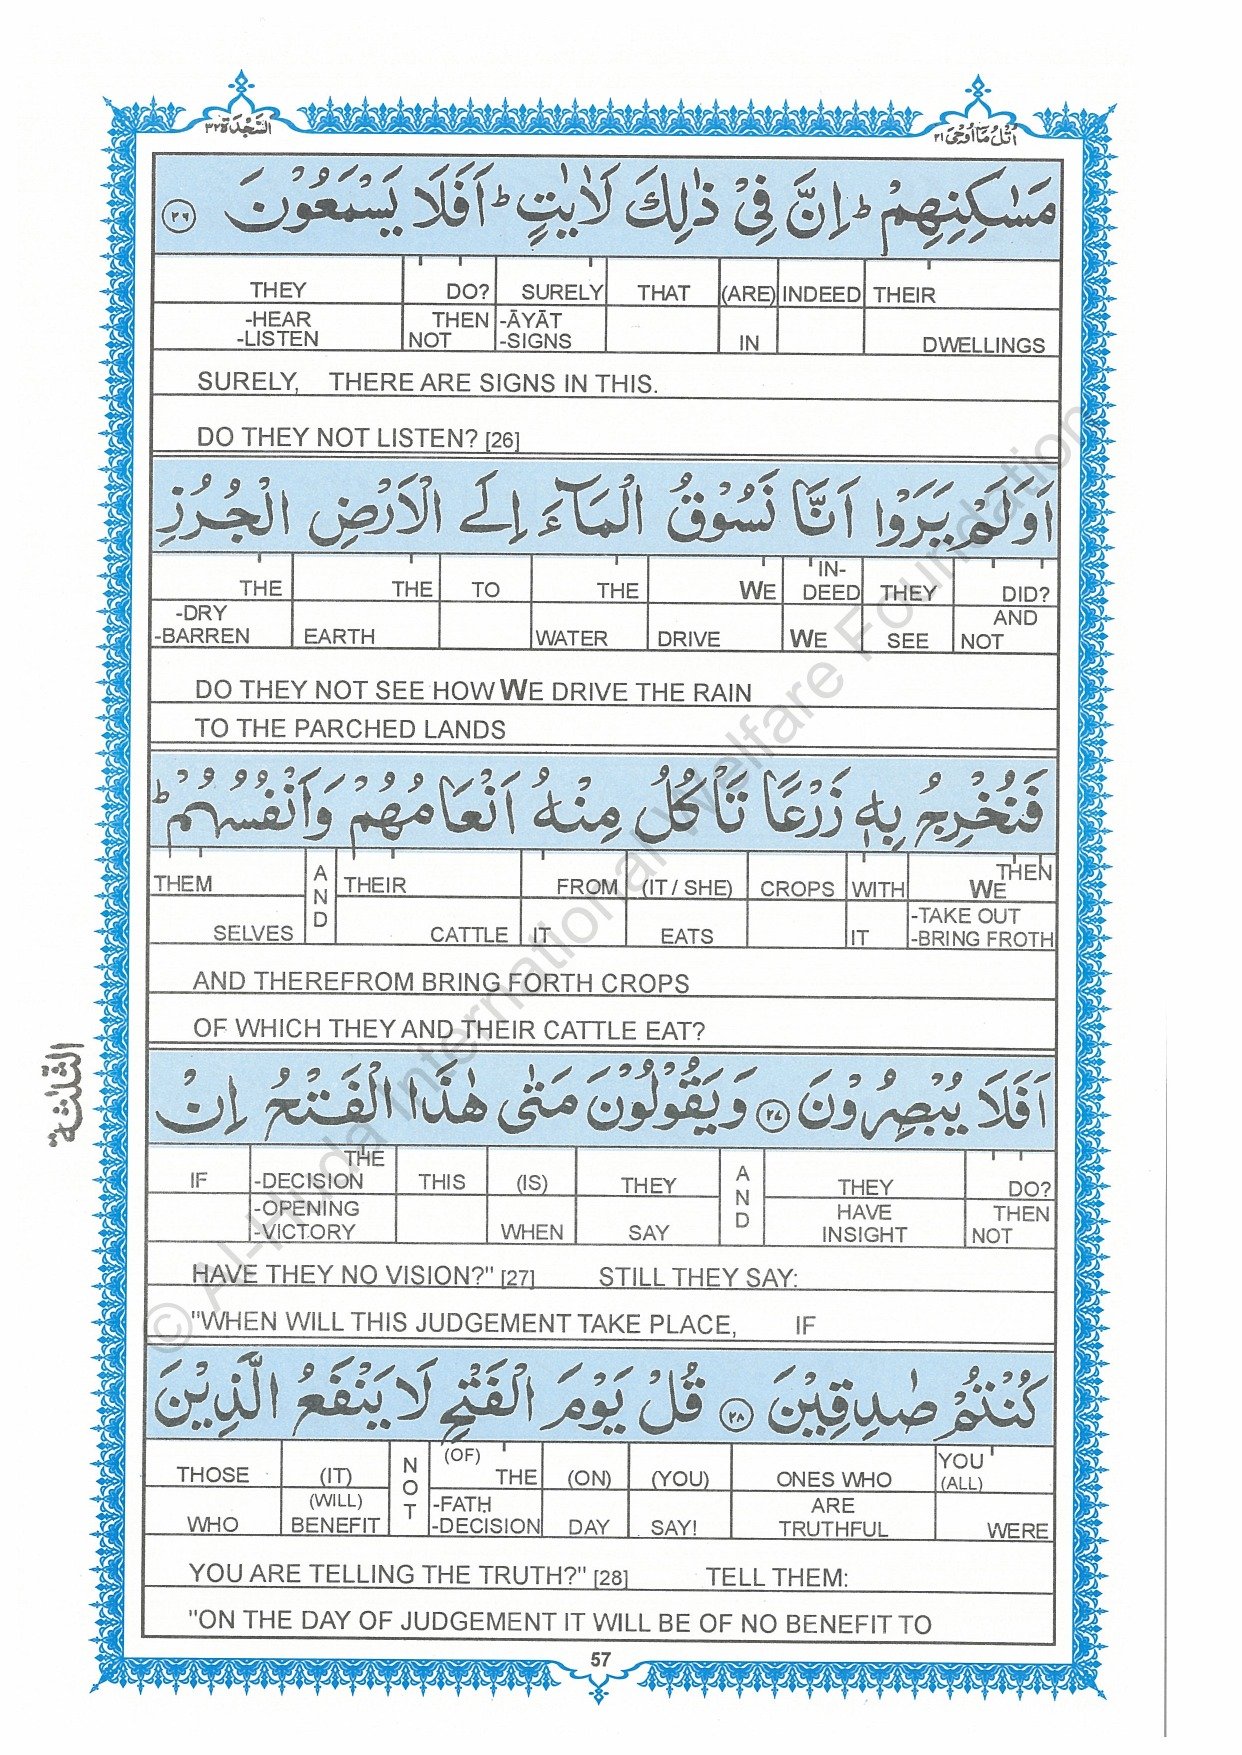 السَّجْدَة ٣٢
اُتْلُ مَا اُوْحِىَ ٢١
مَسٰكِنِهِمْ ؕ اِنَّ فِىْ ذٰلِكَ لَاٰيٰتٍ ؕ اَفَلَا يَسْمَعُوْنَ ﴿٢٦﴾
THEY DO? SURELY THAT (ARE) INDEED THEIR
-HEAR THEN -ĀYĀT
-LISTEN NOT -SIGNS IN DWELLINGS
SURELY, THERE ARE SIGNS IN THIS.
DO THEY NOT LISTEN? [26]
اَوَلَمْ يَرَوْا اَنَّا نَسُوْقُ الْمَآءَ اِلَى الْاَرْضِ الْجُرُزِ
IN-
THE THE TO THE WE DEED THEY DID?
-DRY AND
-BARREN EARTH WATER DRIVE WE SEE NOT
DO THEY NOT SEE HOW WE DRIVE THE RAIN
TO THE PARCHED LANDS
فَنُخْرِجُ بِهٖ زَرْعًا تَاْكُلُ مِنْهُ اَنْعَامُهُمْ وَاَنْفُسُهُمْ ؕ
THEN
THEM AND THEIR FROM (IT / SHE) CROPS WITH WE
-TAKE OUT
SELVES CATTLE IT EATS IT -BRING FROTH
AND THEREFROM BRING FORTH CROPS
OF WHICH THEY AND THEIR CATTLE EAT?
الثلثة
اَفَلَا يُبْصِرُوْنَ ﴿٢٧﴾ وَيَقُوْلُوْنَ مَتٰى هٰذَا الْفَتْحُ اِنْ
THE
IF -DECISION THIS (IS) THEY AND THEY DO?
-OPENING HAVE THEN
-VICTORY WHEN SAY INSIGHT NOT
HAVE THEY NO VISION?" [27] STILL THEY SAY:
"WHEN WILL THIS JUDGEMENT TAKE PLACE, IF
كُنْتُمْ صٰدِقِيْنَ ﴿٢٨﴾ قُلْ يَوْمَ الْفَتْحِ لَا يَنْفَعُ الَّذِيْنَ
(OF) YOU
THOSE (IT) NOT THE (ON) (YOU) ONES WHO (ALL)
(WILL) -FATḤ ARE
WHO BENEFIT -DECISION DAY SAY! TRUTHFUL WERE
YOU ARE TELLING THE TRUTH?" [28] TELL THEM:
"ON THE DAY OF JUDGEMENT IT WILL BE OF NO BENEFIT TO
57
© Al-Huda International Welfare Foundation